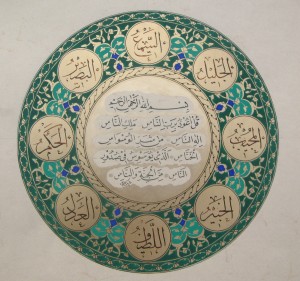 السميع
البصير
الجليل
بسم الله الرحمن الرحيم
قل أعوذ برب الناس ملك الناس
إله الناس من شر الوسواس
الخناس الذي يوسوس في صدور
الناس من الجنة والناس
الحكم
العدل
الخبير
اللطيف